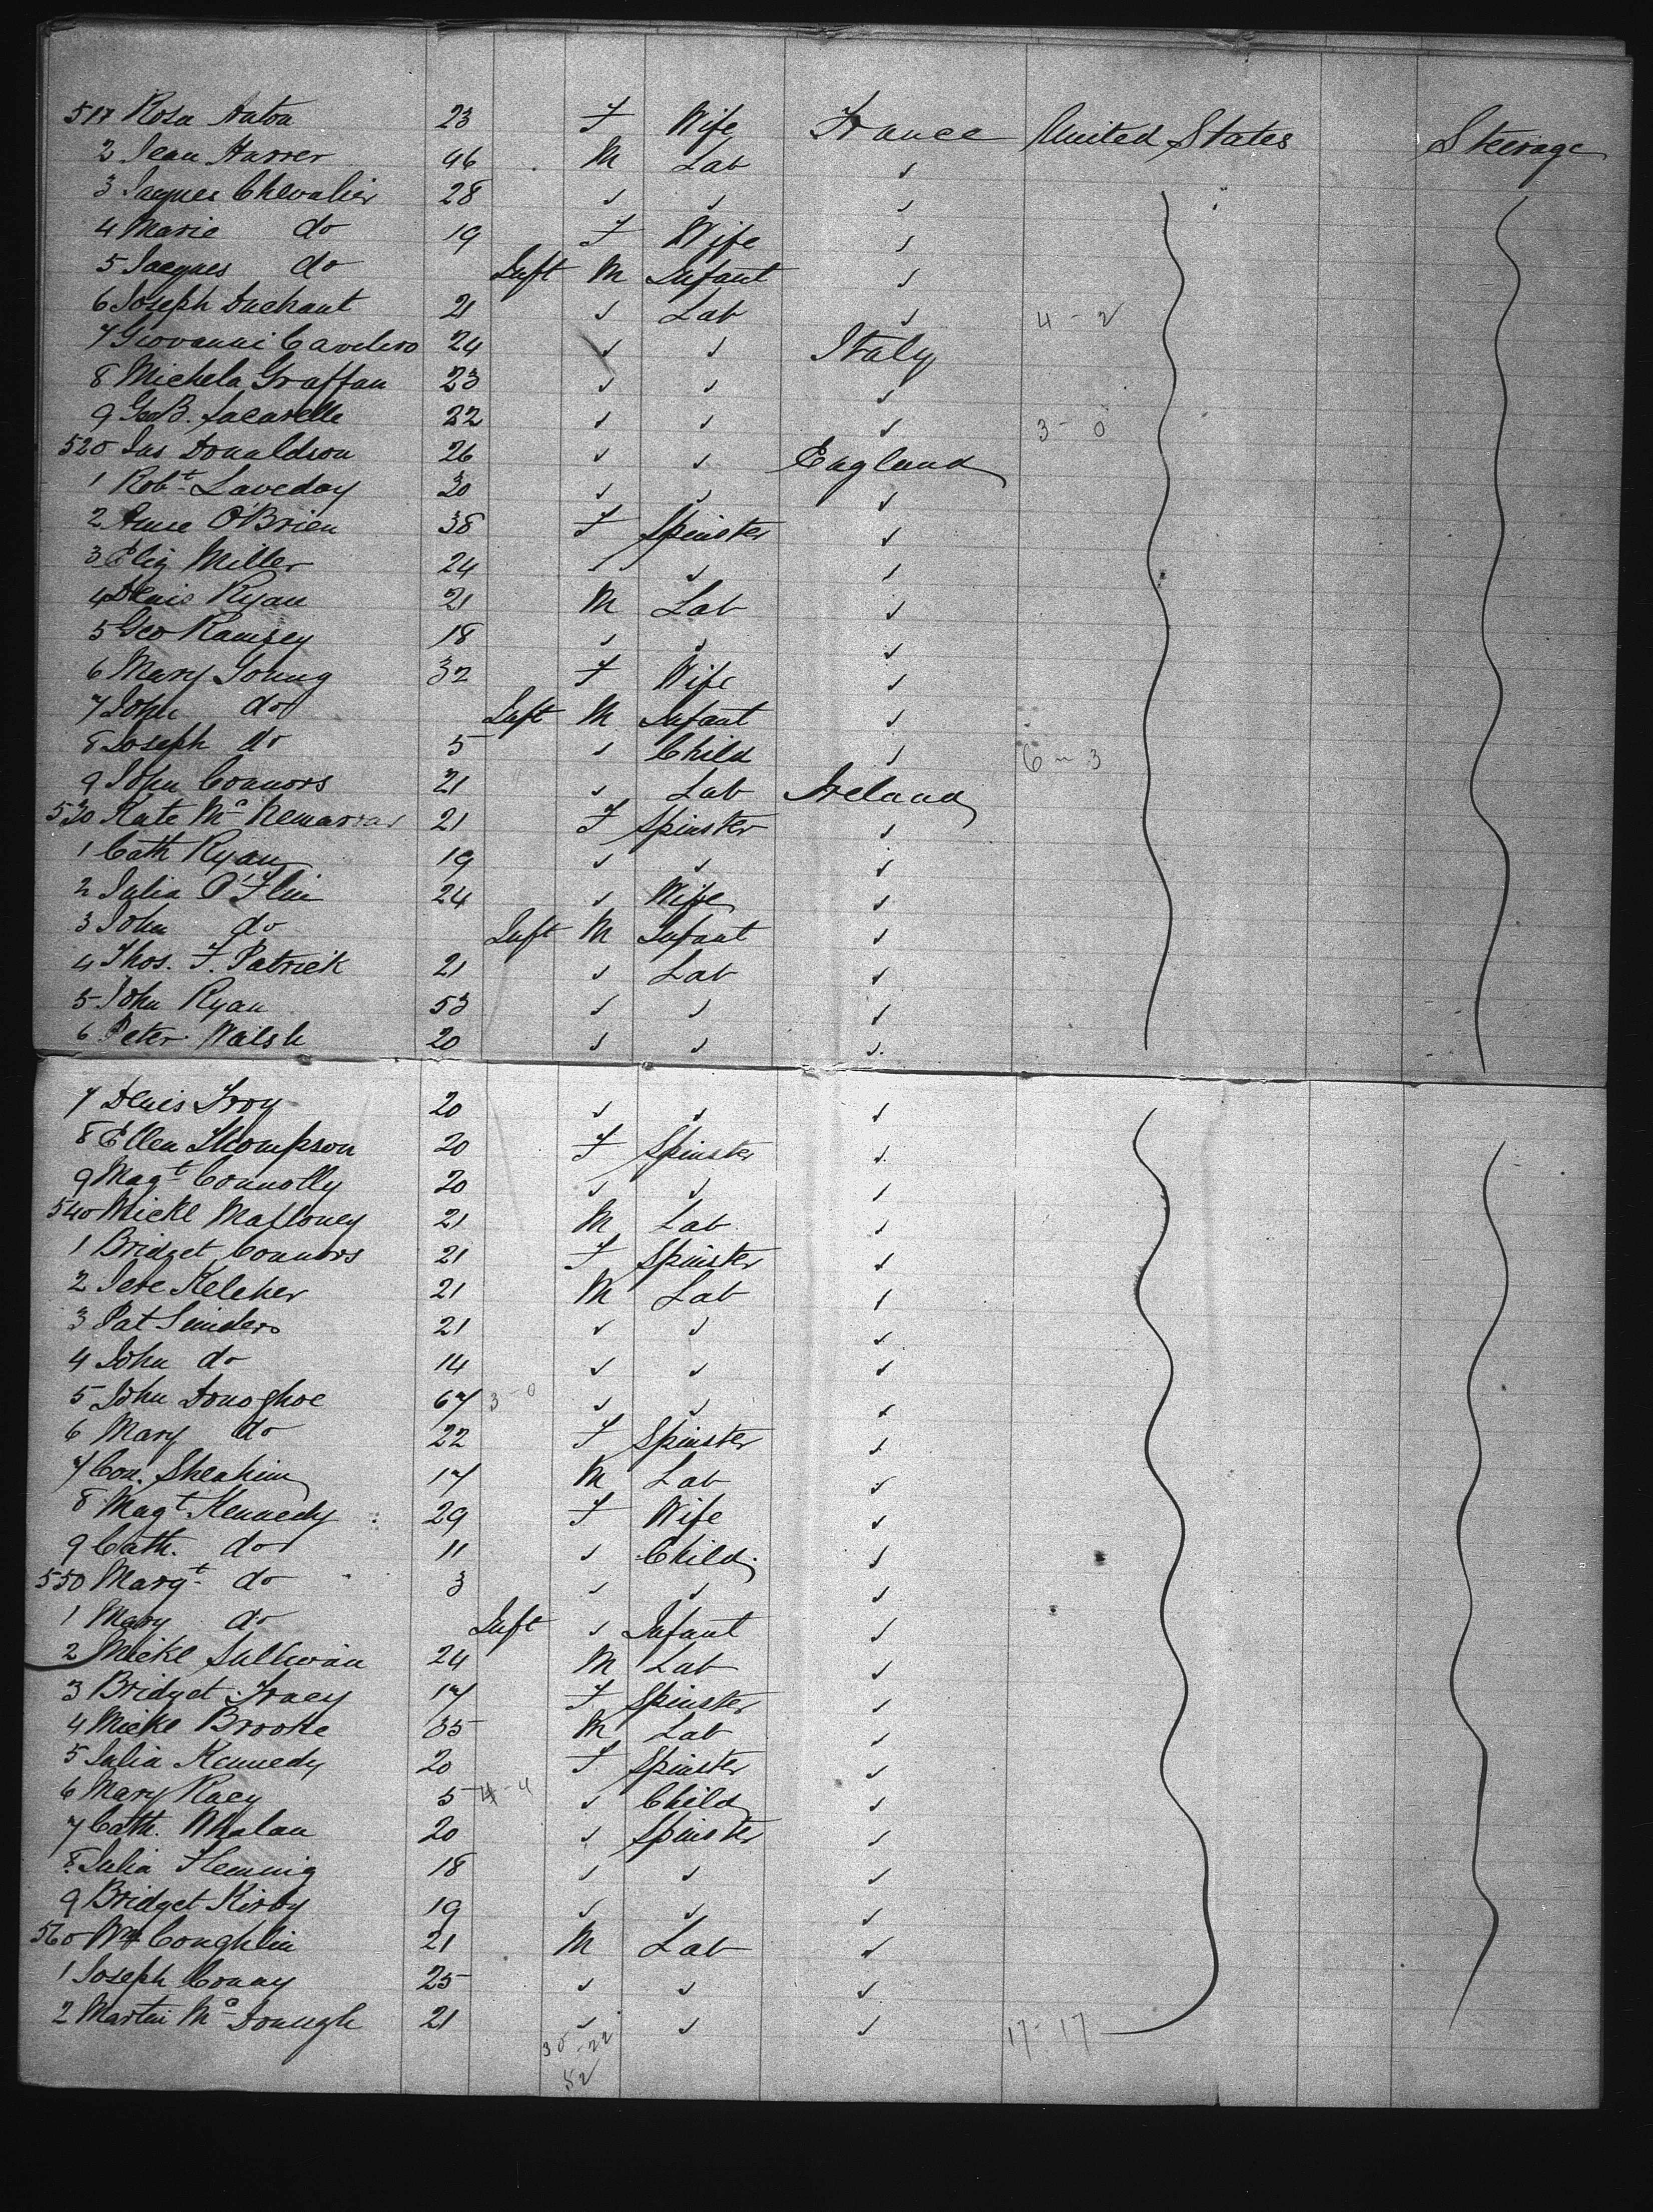 511 Rosa Anton 23 F Wife France United States Steerage
2 Jean Harrer 46 M Lab ✓
3 Jaques Chevalier 28 ✓ ✓ ✓
4 Marie do 19 F Wife ✓
5 Jacques do Inft M Infant ✓
6 Joseph Duchaut 21 ✓ Lab ✓ 4 - 2
7 Giovanni Cavelero 24 ✓ ✓ Italy
8 Michela Graffau 23 ✓ ✓ ✓
9 Geo B. Lacavelle 22 ✓ ✓ ✓ 3 - 0
520 Jas Donaldson 26 ✓ ✓ England
1 Robt Laveday 30 ✓ ✓ ✓
2 Anne O'Brien 38 F Spinster ✓
3 Eliz Miller 24 ✓ ✓ ✓
4 Denis Ryan 21 M Lab ✓
5 Geo Ramsey 18 ✓ ✓ ✓
6 Mary Young 32 F Wife ✓
7 John do Inft M Infant ✓
8 Joseph do 5 ✓ Child ✓ 6 - 3
9 John Connors 21 ✓ Lab Ireland
530 Kate Mc 21 F Spinster ✓
1 Cath Ryan 19 ✓ ✓ ✓
2 Julia O'Flin 24 ✓ Wife ✓
3 John do Inft M Infant ✓
4 Thos. F. Patrick 21 ✓ Lab ✓
5 John Ryan 53 ✓ ✓ ✓
6 Peter Walsh 20 ✓ ✓ ✓
7 Denis Troy 20 ✓ ✓ ✓
8 Ellen Thompson 20 F Spinster ✓
9 Magt Connolly 20 ✓ ✓ ✓
540 Mickl Mafloney 21 M Lab ✓
1 Bridget Connors 21 F Spinster ✓
2 Jere Keleher 21 M Lab ✓
3 Pat Sunders 21 ✓ ✓ ✓
4 John do 14 ✓ ✓ ✓
5 John Donoghoe 67 3 - 0 ✓ ✓ ✓
6 Mary do 22 F Spinster ✓
7 Con. Sheahim 17 M Lab ✓
8 Magt Kennedy 29 F Wife ✓
9 Cath. do 11 ✓ Child ✓
550 Margt do 3 ✓ ✓ ✓
1 Mary do Inft ✓ Infant ✓
2 Mickl Sullivan 24 M Lab ✓
3 Bridget Tracy 17 F Spinster ✓
4 Mickl Brooke 35 M Lab ✓
5 Julia Kennedy 20 F Spinster ✓
6 Mary Racy 5 4 - 4 ✓ Child ✓
7 Cath. Whalan 20 ✓ Spinster ✓
8 Julia Flemnig 18 ✓ ✓ ✓
9 Bridget Kirby 19 ✓ ✓ ✓
560 Wm Coughlin 21 M Lab ✓
1 Joseph Conny 25 ✓ ✓ ✓
2 Martin Mc Donugh 21 ✓ ✓ ✓ 17 - 17
30 - 22
52